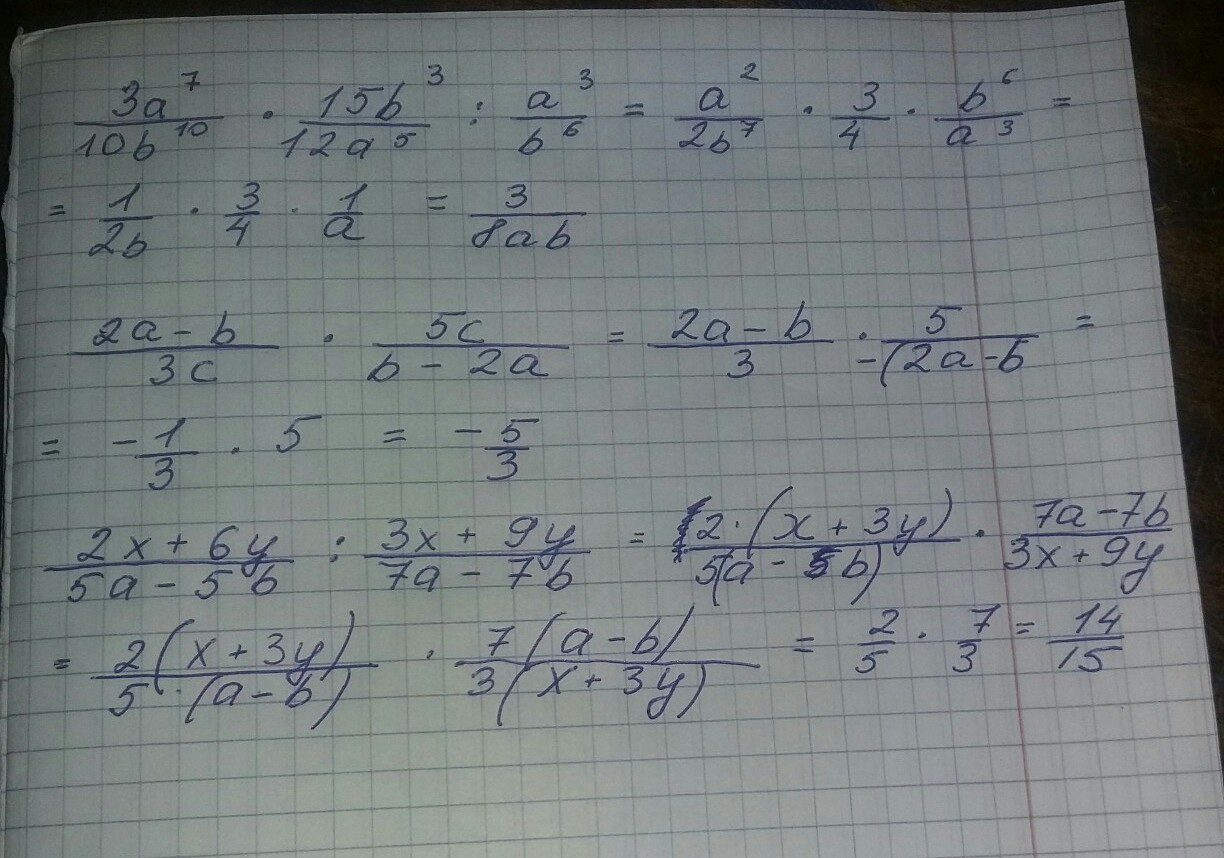 3a⁷/10b¹⁰ · 15b³/12a⁵ : a³/b⁶ = a²/2b⁷ · 3/4 · b⁶/a³ =
= 1/2b · 3/4 · 1/a = 3/8ab
2a - b/3c · 5c/b - 2a = 2a - b/3 · 5/-(2a - b =
= -1/3 · 5 = -5/3
2x + 6y/5a - 5b : 3x + 9y/7a - 7b = 2·(x + 3y)/5(a - b) · 7a - 7b/3x + 9y
= 2(x + 3y)/5·(a - b) · 7(a - b)/3(x + 3y) = 2/5 · 7/3 = 14/15